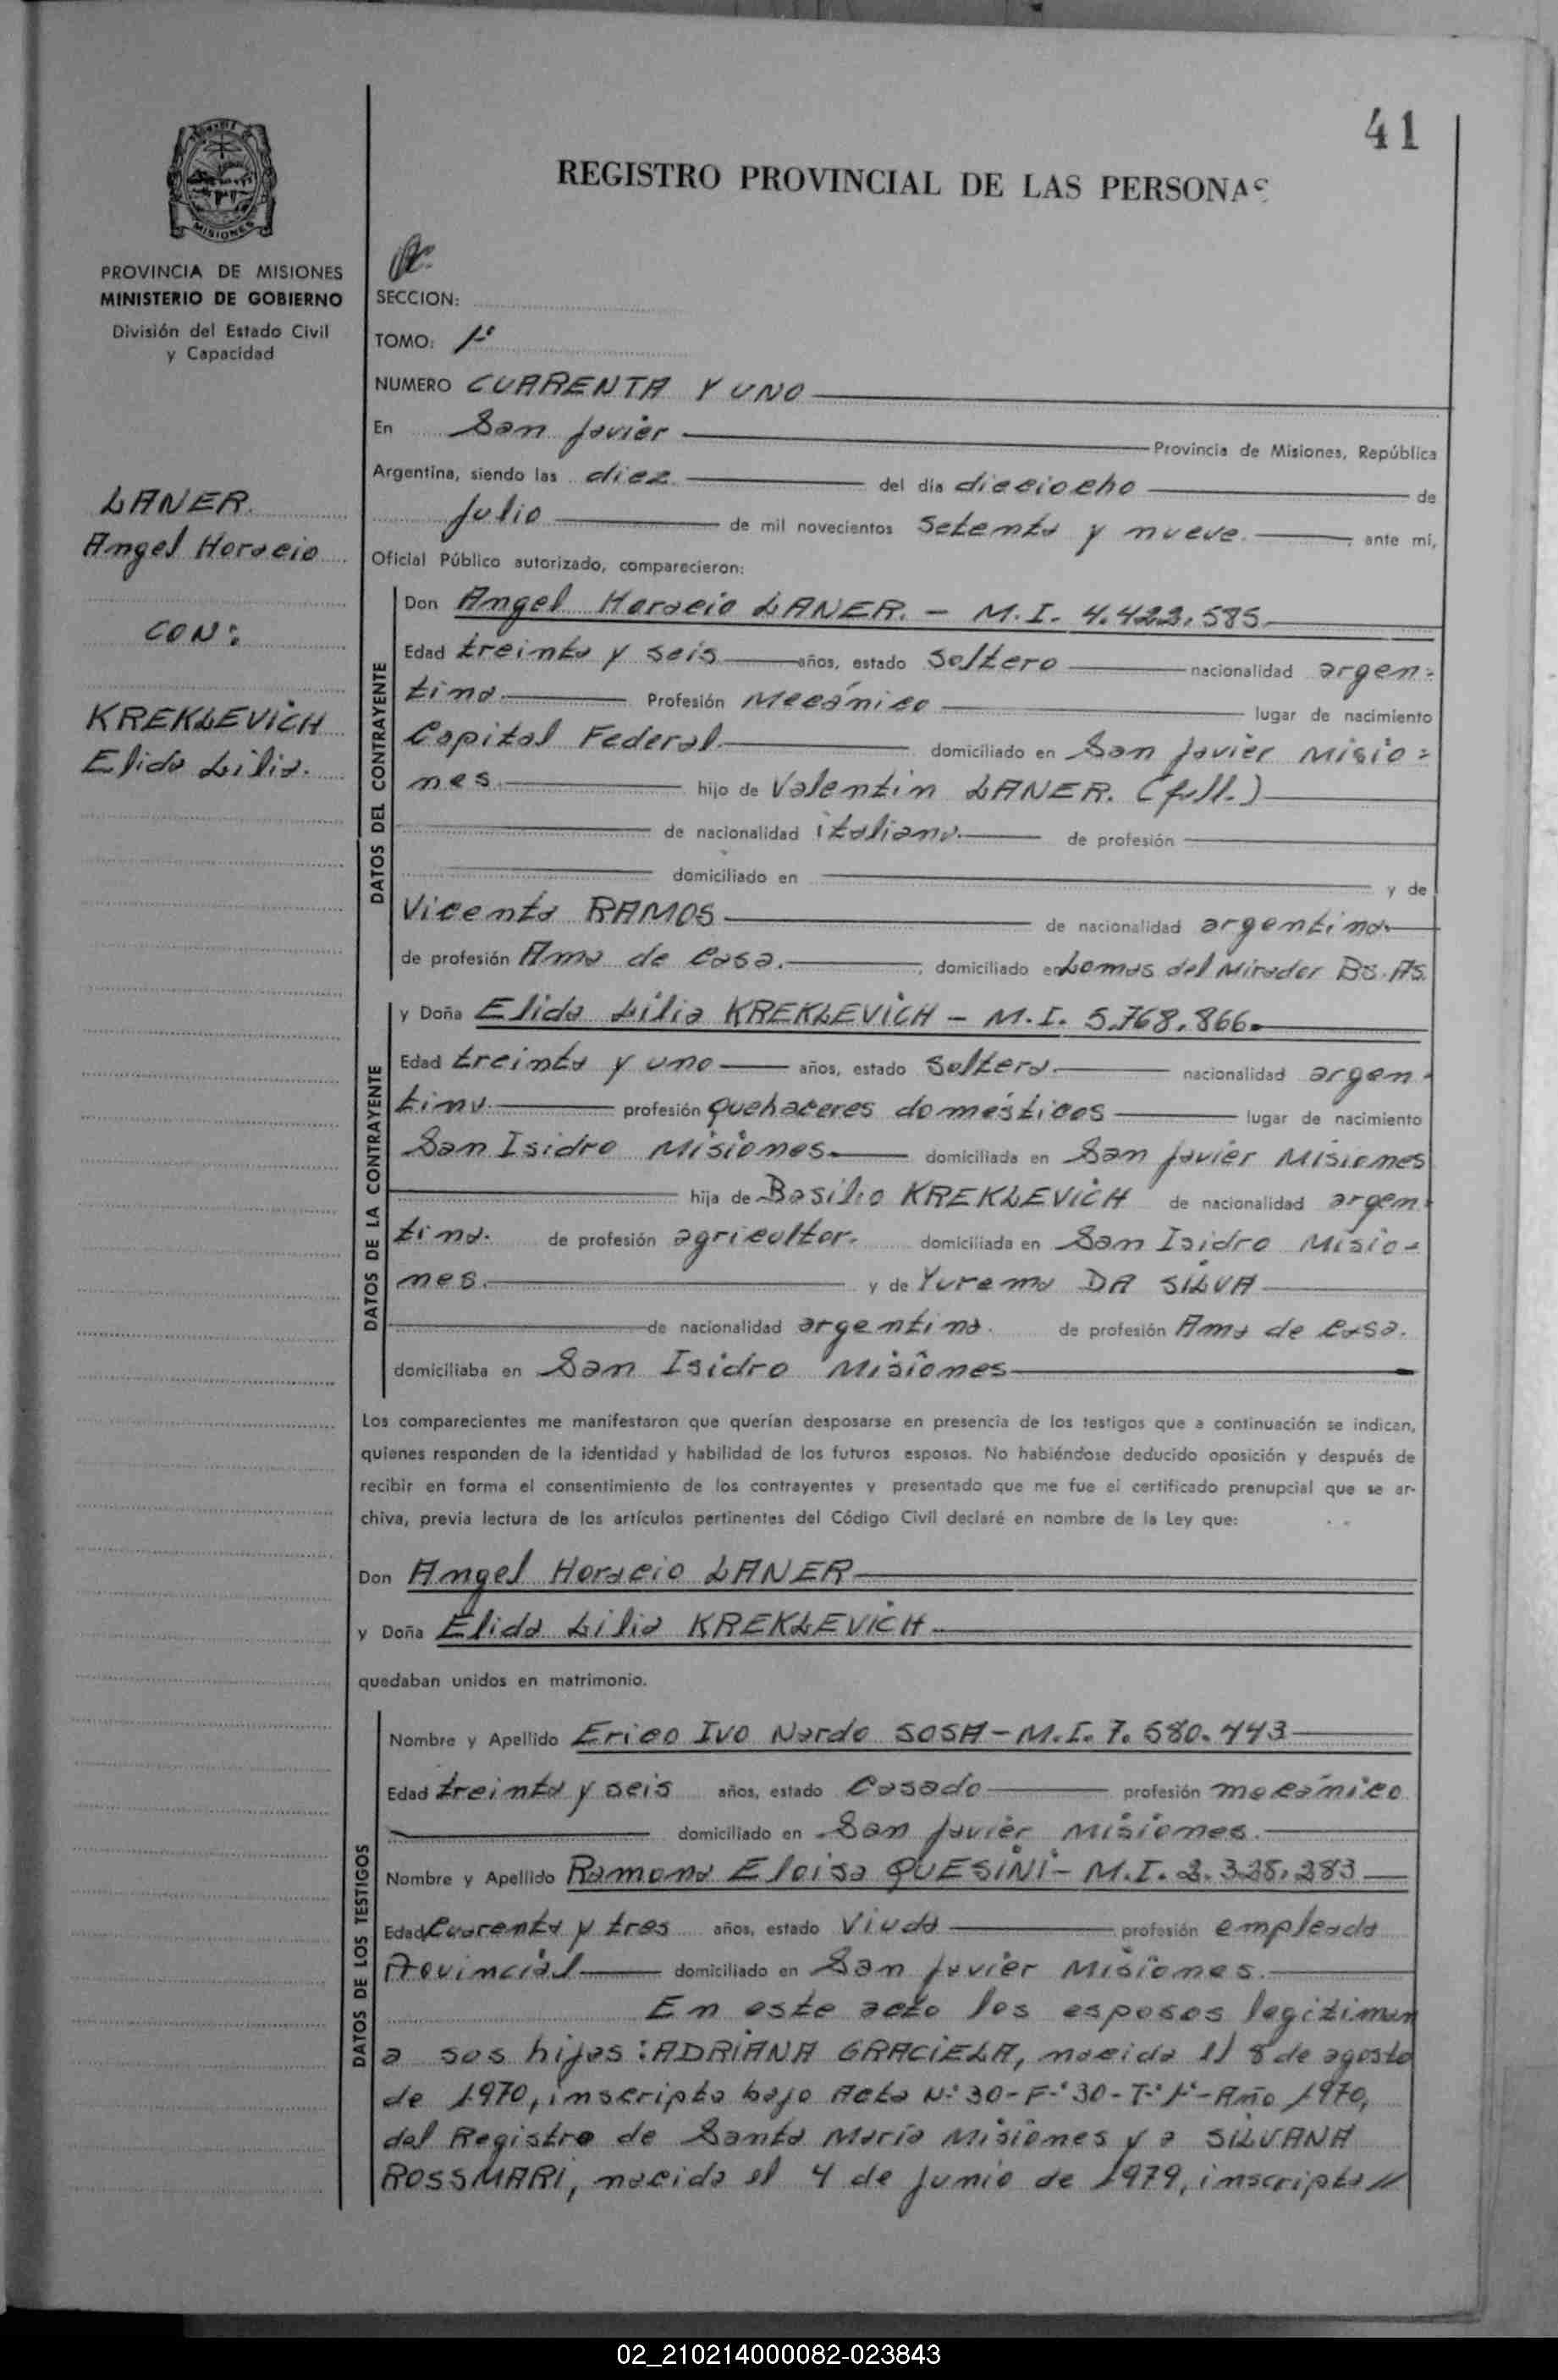 41
REGISTRO PROVINCIAL DE LAS PERSONAS
MISIONES
PROVINCIA DE MISIONES
MINISTERIO DE GOBIERNO
División del Estado Civil
y Capacidad
LANER.
Angel Horacio
CON:
KREKLEVICH
Elida Lilia.
SECCION:
TOMO: 1º
NUMERO CUARENTA Y UNO
En San Javier Provincia de Misiones, República
Argentina, siendo las diez del día dieciocho de
Julio de mil novecientos Setenta y nueve. , ante mí,
Oficial Público autorizado, comparecieron:
DATOS DEL CONTRAYENTE
Don Angel Horacio LANER. - M.I. 4.423.585.
Edad treinta y seis años, estado Soltero nacionalidad argen=
tina. Profesión Mecánico lugar de nacimiento
Capital Federal. domiciliado en San Javier Misio=
nes. hijo de Valentin LANER. (fall.)
de nacionalidad italiana. de profesión
domiciliado en y de
Vicenta RAMOS de nacionalidad argentina.
de profesión Ama de Casa. , domiciliado en Lomas del Mirador Bs. As.
DATOS DE LA CONTRAYENTE
y Doña Elida Lilia KREKLEVICH - M.I. 5.768.866.
Edad treinta y uno años, estado Soltera. nacionalidad argen-
tina. profesión quehaceres domésticos lugar de nacimiento
San Isidro Misiones. domiciliada en San Javier Misiones
hija de Basilio KREKLEVICH de nacionalidad argen-
tina. de profesión agricultor. domiciliada en San Isidro Misio-
nes. y de Yurema DA SILVA
de nacionalidad argentina. de profesión Ama de Casa.
domiciliaba en San Isidro Misiones
Los comparecientes me manifestaron que querían desposarse en presencia de los testigos que a continuación se indican,
quienes responden de la identidad y habilidad de los futuros esposos. No habiéndose deducido oposición y después de
recibir en forma el consentimiento de los contrayentes y presentado que me fue el certificado prenupcial que se ar-
chiva, previa lectura de los artículos pertinentes del Código Civil declaré en nombre de la Ley que:
Don Angel Horacio LANER
y Doña Elida Lilia KREKLEVICH
quedaban unidos en matrimonio.
DATOS DE LOS TESTIGOS
Nombre y Apellido Erico Ivo Nardo SOSA - M.I. 7.580.443
Edad treinta y seis años, estado Casado profesión mecánico
domiciliado en San Javier Misiones.
Nombre y Apellido Ramona Eloisa QUESINI - M.I. 2.328.283
Edad Cuarenta y tres años, estado Viuda profesión empleada
Provincial domiciliado en San Javier Misiones.
En este acto los esposos legitiman
a sus hijas: ADRIANA GRACIELA, nacida el 8 de agosto
de 1970, inscripta bajo Acta Nº 30 - Fº 30 - Tº 1º - Año 1970,
del Registro de Santa María Misiones y a SILVANA
ROSSMARI, nacida el 4 de Junio de 1979, inscripta //
02_210214000082-023843